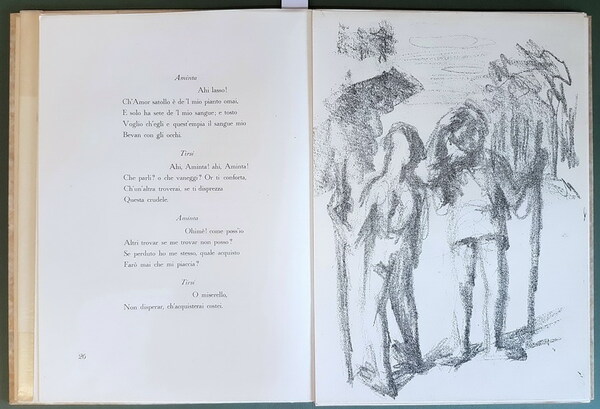 Aminta
Ahi lasso!
Ch'Amor satollo è de 'l mio pianto omai,
E solo ha sete de 'l mio sangue; e tosto
Voglio ch'egli e quest'empia il sangue mio
Bevan con gli occhi.
Tirsi
Ahi, Aminta! ahi, Aminta!
Che parli? o che vaneggi? Or ti conforta,
Ch'un'altra troverai, se ti disprezza
Questa crudele.
Aminta
Ohimè! come poss'io
Altri trovar se me trovar non posso?
Se perduto ho me stesso, quale acquisto
Farò mai che mi piaccia?
Tirsi
O miserello,
Non disperar, ch'acquisterai costei.
26